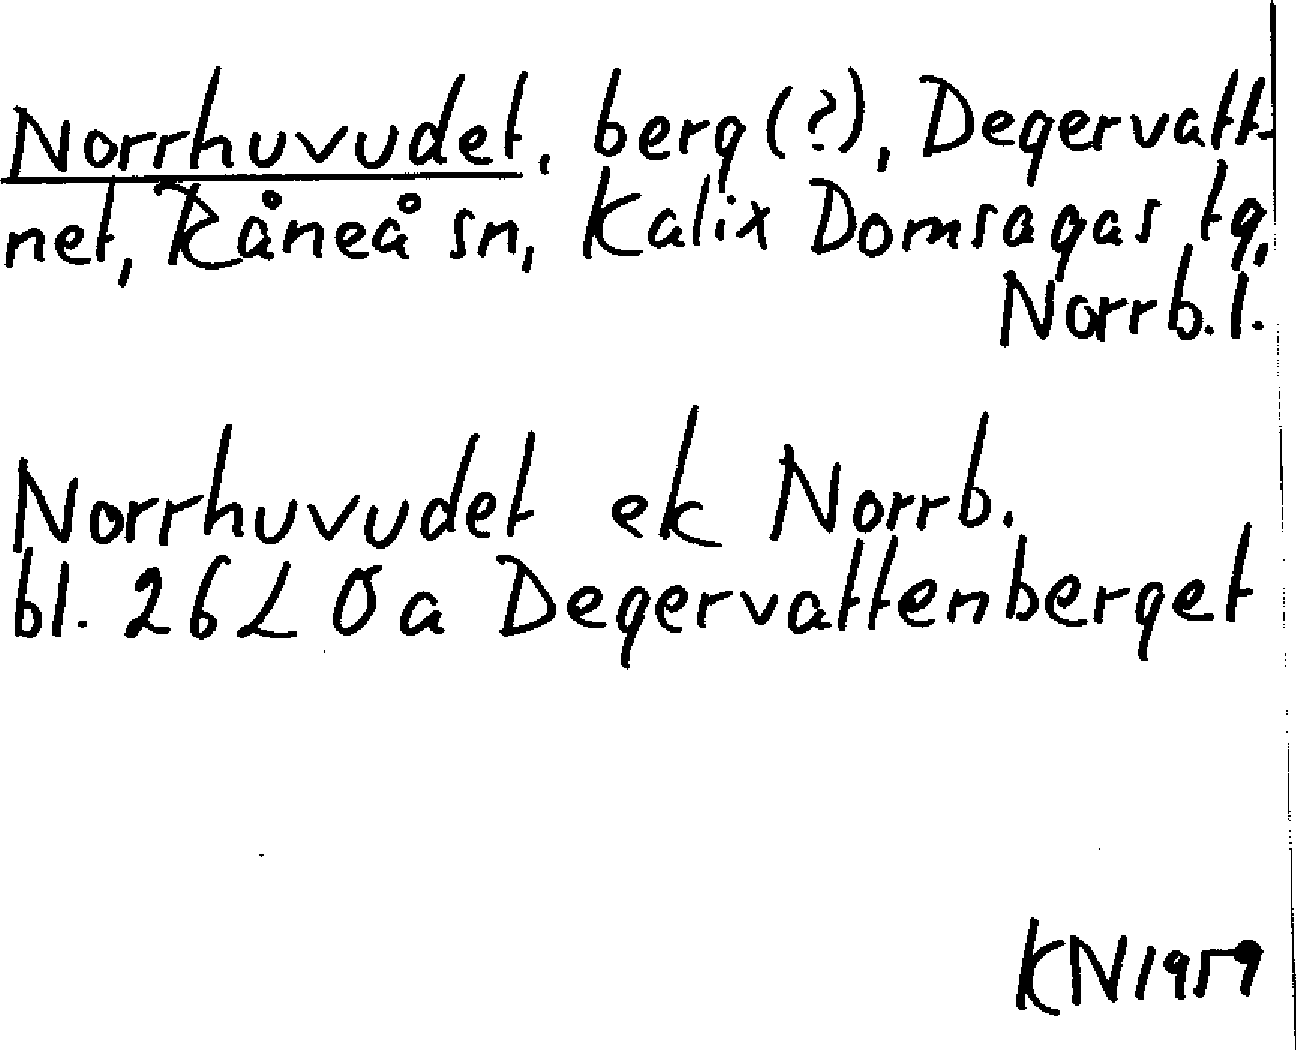 Norrhuvudet, berg (?), Degervatt-
net, Råneå sn, Kalix Domsagas tg,
Norrb. l.
Norrhuvudet ek Norrb.
bl. 26 L 0 a Degervattenberget
KN 1959